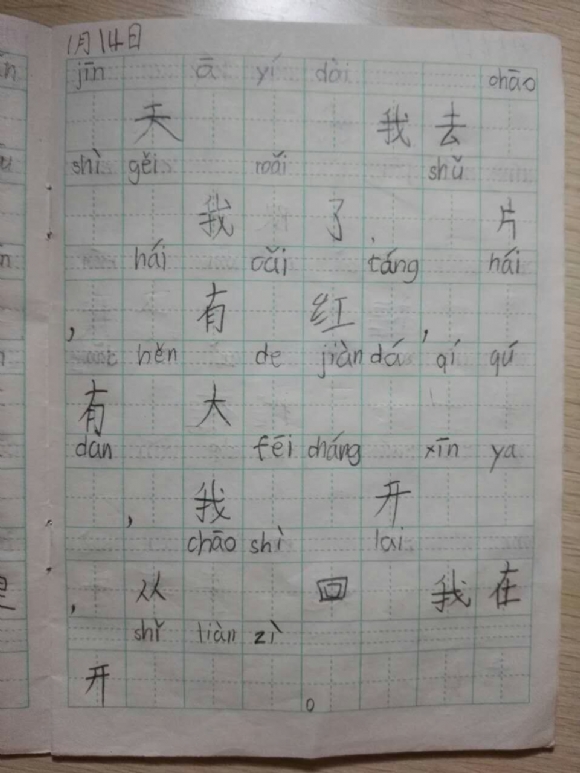 1月14日
jīn ā yí dài chāo
天 我 去
shì gěi mǎi shǔ
我 了 , 片
hái cǎi táng hái
, 有 红 ,
hěn de jiàn dá qí qú
有 大
dàn fēi cháng xīn ya
, 我 开
chāo shì lai
, 从 回 我 在
shǐ liàn zì
开 。